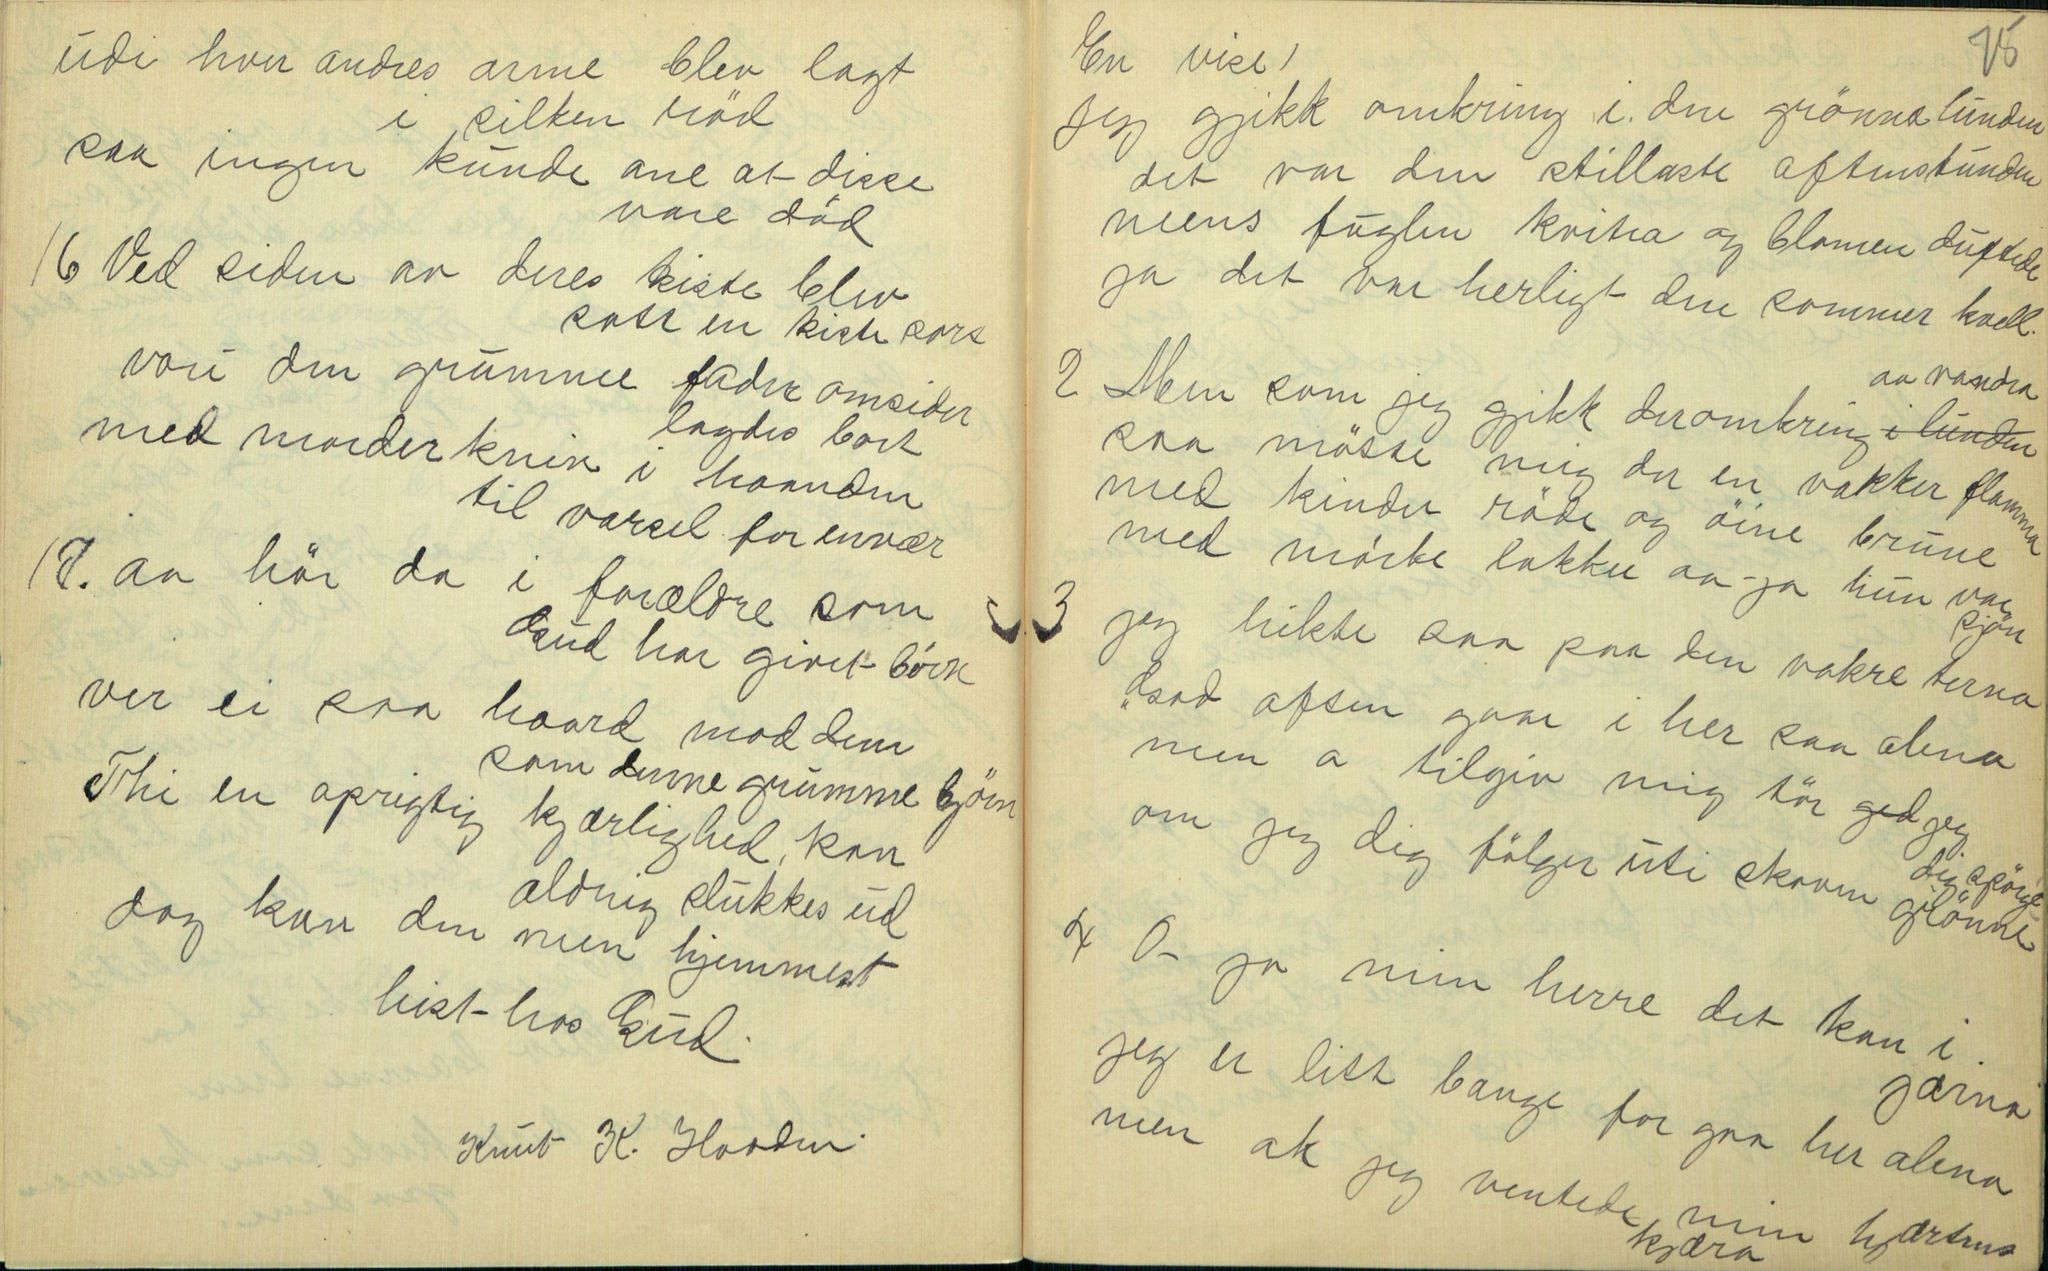 udi hver andres arme blev lagt
i silken röd
saa ingen kunde ane at disse
vare död
16 Ved siden av deres kiste blev
satt en kiste sort
vori den grumme fader omsider
lagdes bort
med morder kniv i haanden
til varsel for envær
18. aa hör da i forældre som
Gud har givet börn
ver ei saa haard mod dem
som denne grumme björn
Thi en oprigtig kjærlighed, kan
aldrig slukkes ud
dog kan den men hjemmest
hist hos Gud.
Knut K. Hovden.
75
En vise!
jeg gjikk omkring i den grönna lunden
det var den stillaste aftenstunden
mens fuglen kvitra og blomen duftede
ja det var herligt den sommer kvell.
2 Men som jeg gjikk deromkring i lunden aa vandra
saa mötte mig der en vakker flamma
med kinder röde og öine brune
med mörke lokker aa-ja hun var
sjön
3 jeg hikte saa paa den vakre terna
"God aften gaar i her saa alena
men o tilgiv mig tör ged jeg
dig spörge
om jeg dig fölger uti skoven
grönne
4 O- ja min herre det kan i
jærna
jeg er litt bange for gaa her alena
men ak jeg ventede min hjærtens
kjæra